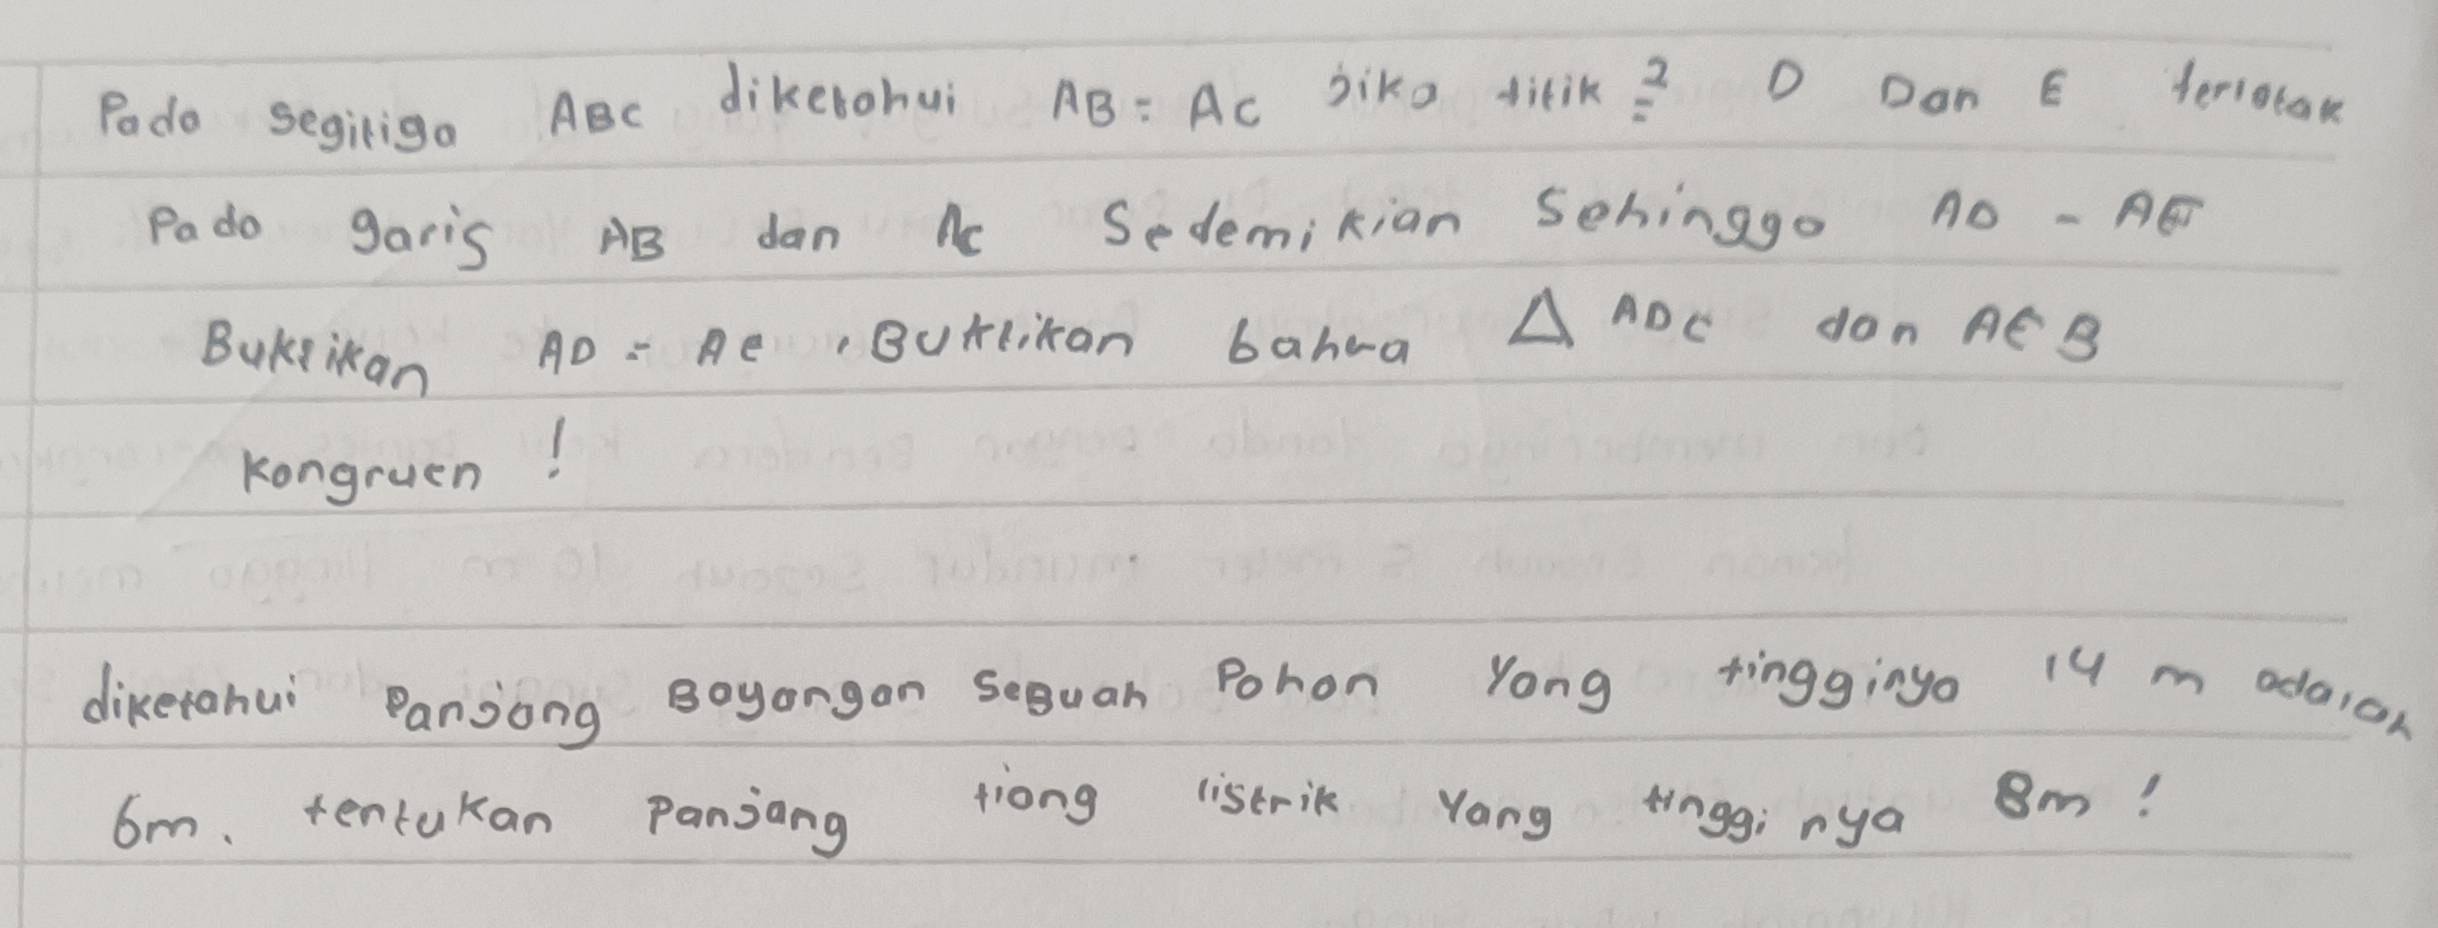 Pada segitiga ABC diketahui AB = AC jika titik 2 D Dan E terletak
Pada garis AB dan AC Sedemikian Sehingga AD - AE
Buktikan AD = AE . Buktikan bahwa △ ADC dan AEB
kongruen !
diketahui Panjang Bayangan SeBuah Pohon Yang tingginya 14 m adalah
6m. tentukan Panjang tiang listrik Yang tingginya 8m !